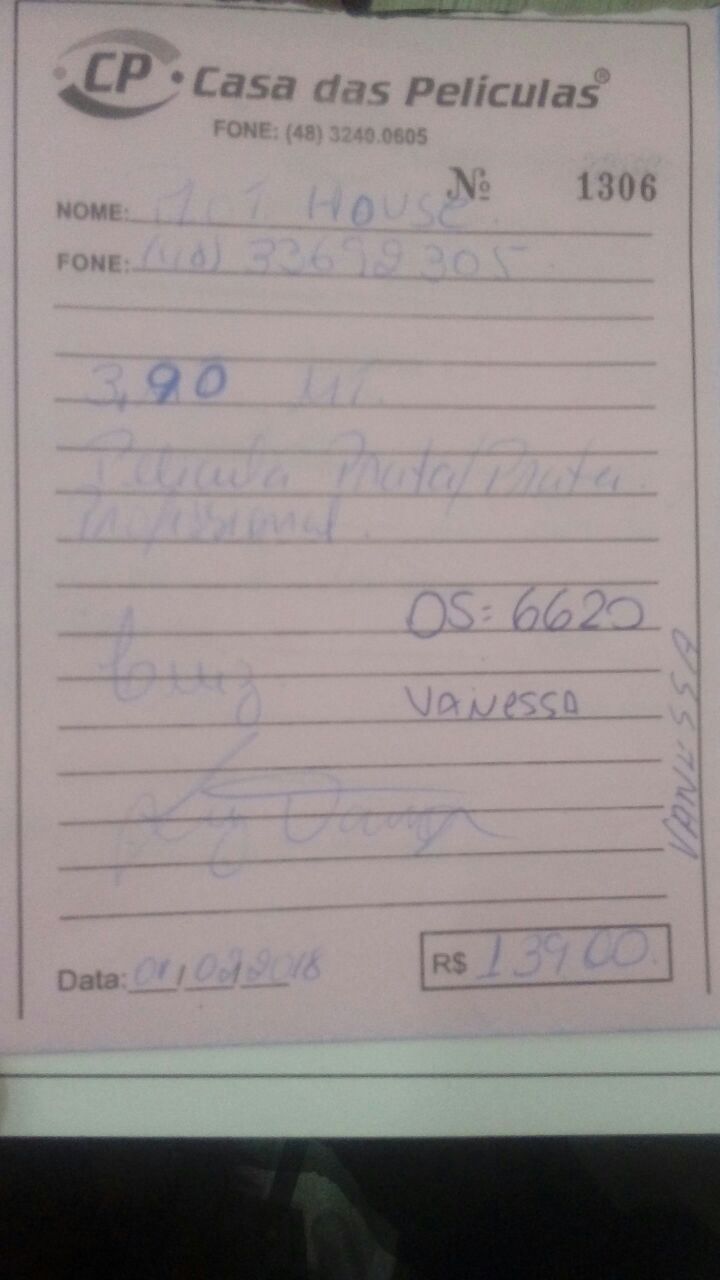 CP • Casa das Películas®
FONE: (48) 3240.0605
Nº 1306
NOME: HOUSE
FONE: (48) 33692305
3,90 MT.
Película Prata/Prata
Profissional.
OS: 6620
Luiz
VANESSA
VANESSA
Data: 01/02/2018
R$ 139,00